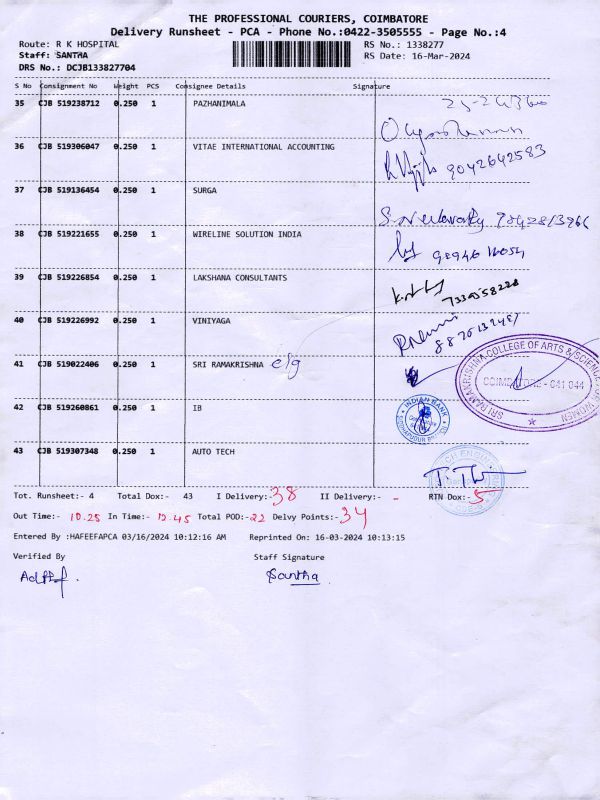 THE PROFESSIONAL COURIERS, COIMBATORE
Delivery Runsheet - PCA - Phone No.:0422-3505555 - Page No.:4
Route: R K HOSPITAL
RS No.: 1338277
Staff: SANTHA
RS Date: 16-Mar-2024
DRS No.: DCJB133827704
S No Consignment No Weight PCS Consignee Details Signature
35 CJB 519238712 0.250 1 PAZHANIMALA
36 CJB 519306047 0.250 1 VITAE INTERNATIONAL ACCOUNTING
9042642583
37 CJB 519136454 0.250 1 SURGA
38 CJB 519221655 0.250 1 WIRELINE SOLUTION INDIA
39 CJB 519226854 0.250 1 LAKSHANA CONSULTANTS
40 CJB 519226992 0.250 1 VINIYAGA
41 CJB 519022406 0.250 1 SRI RAMAKRISHNA clg
SRI RAMAKRISHNA COLLEGE OF ARTS & SCIENCE FOR WOMEN
COIMBATORE - 641 044
42 CJB 519260861 0.250 1 IB
INDIAN BANK
43 CJB 519307348 0.250 1 AUTO TECH
Tot. Runsheet:- 4 Total Dox:- 43 I Delivery:- 38 II Delivery:- - RTN Dox:- 5
Out Time:- 10.25 In Time:- 12.45 Total POD:- 22 Delvy Points:- 34
Entered By :HAFEEFAPCA 03/16/2024 10:12:16 AM Reprinted On: 16-03-2024 10:13:15
Verified By Staff Signature
Santha